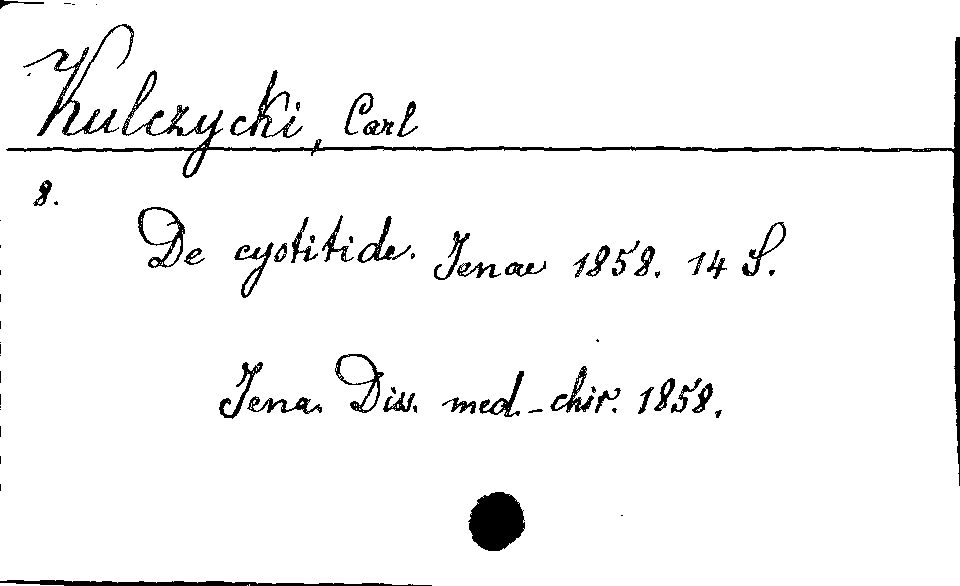 Kulczycki, Carl
8.
De cystitide. Jenae 1858. 14 S.
Jena. Diss. med.-chir. 1858.